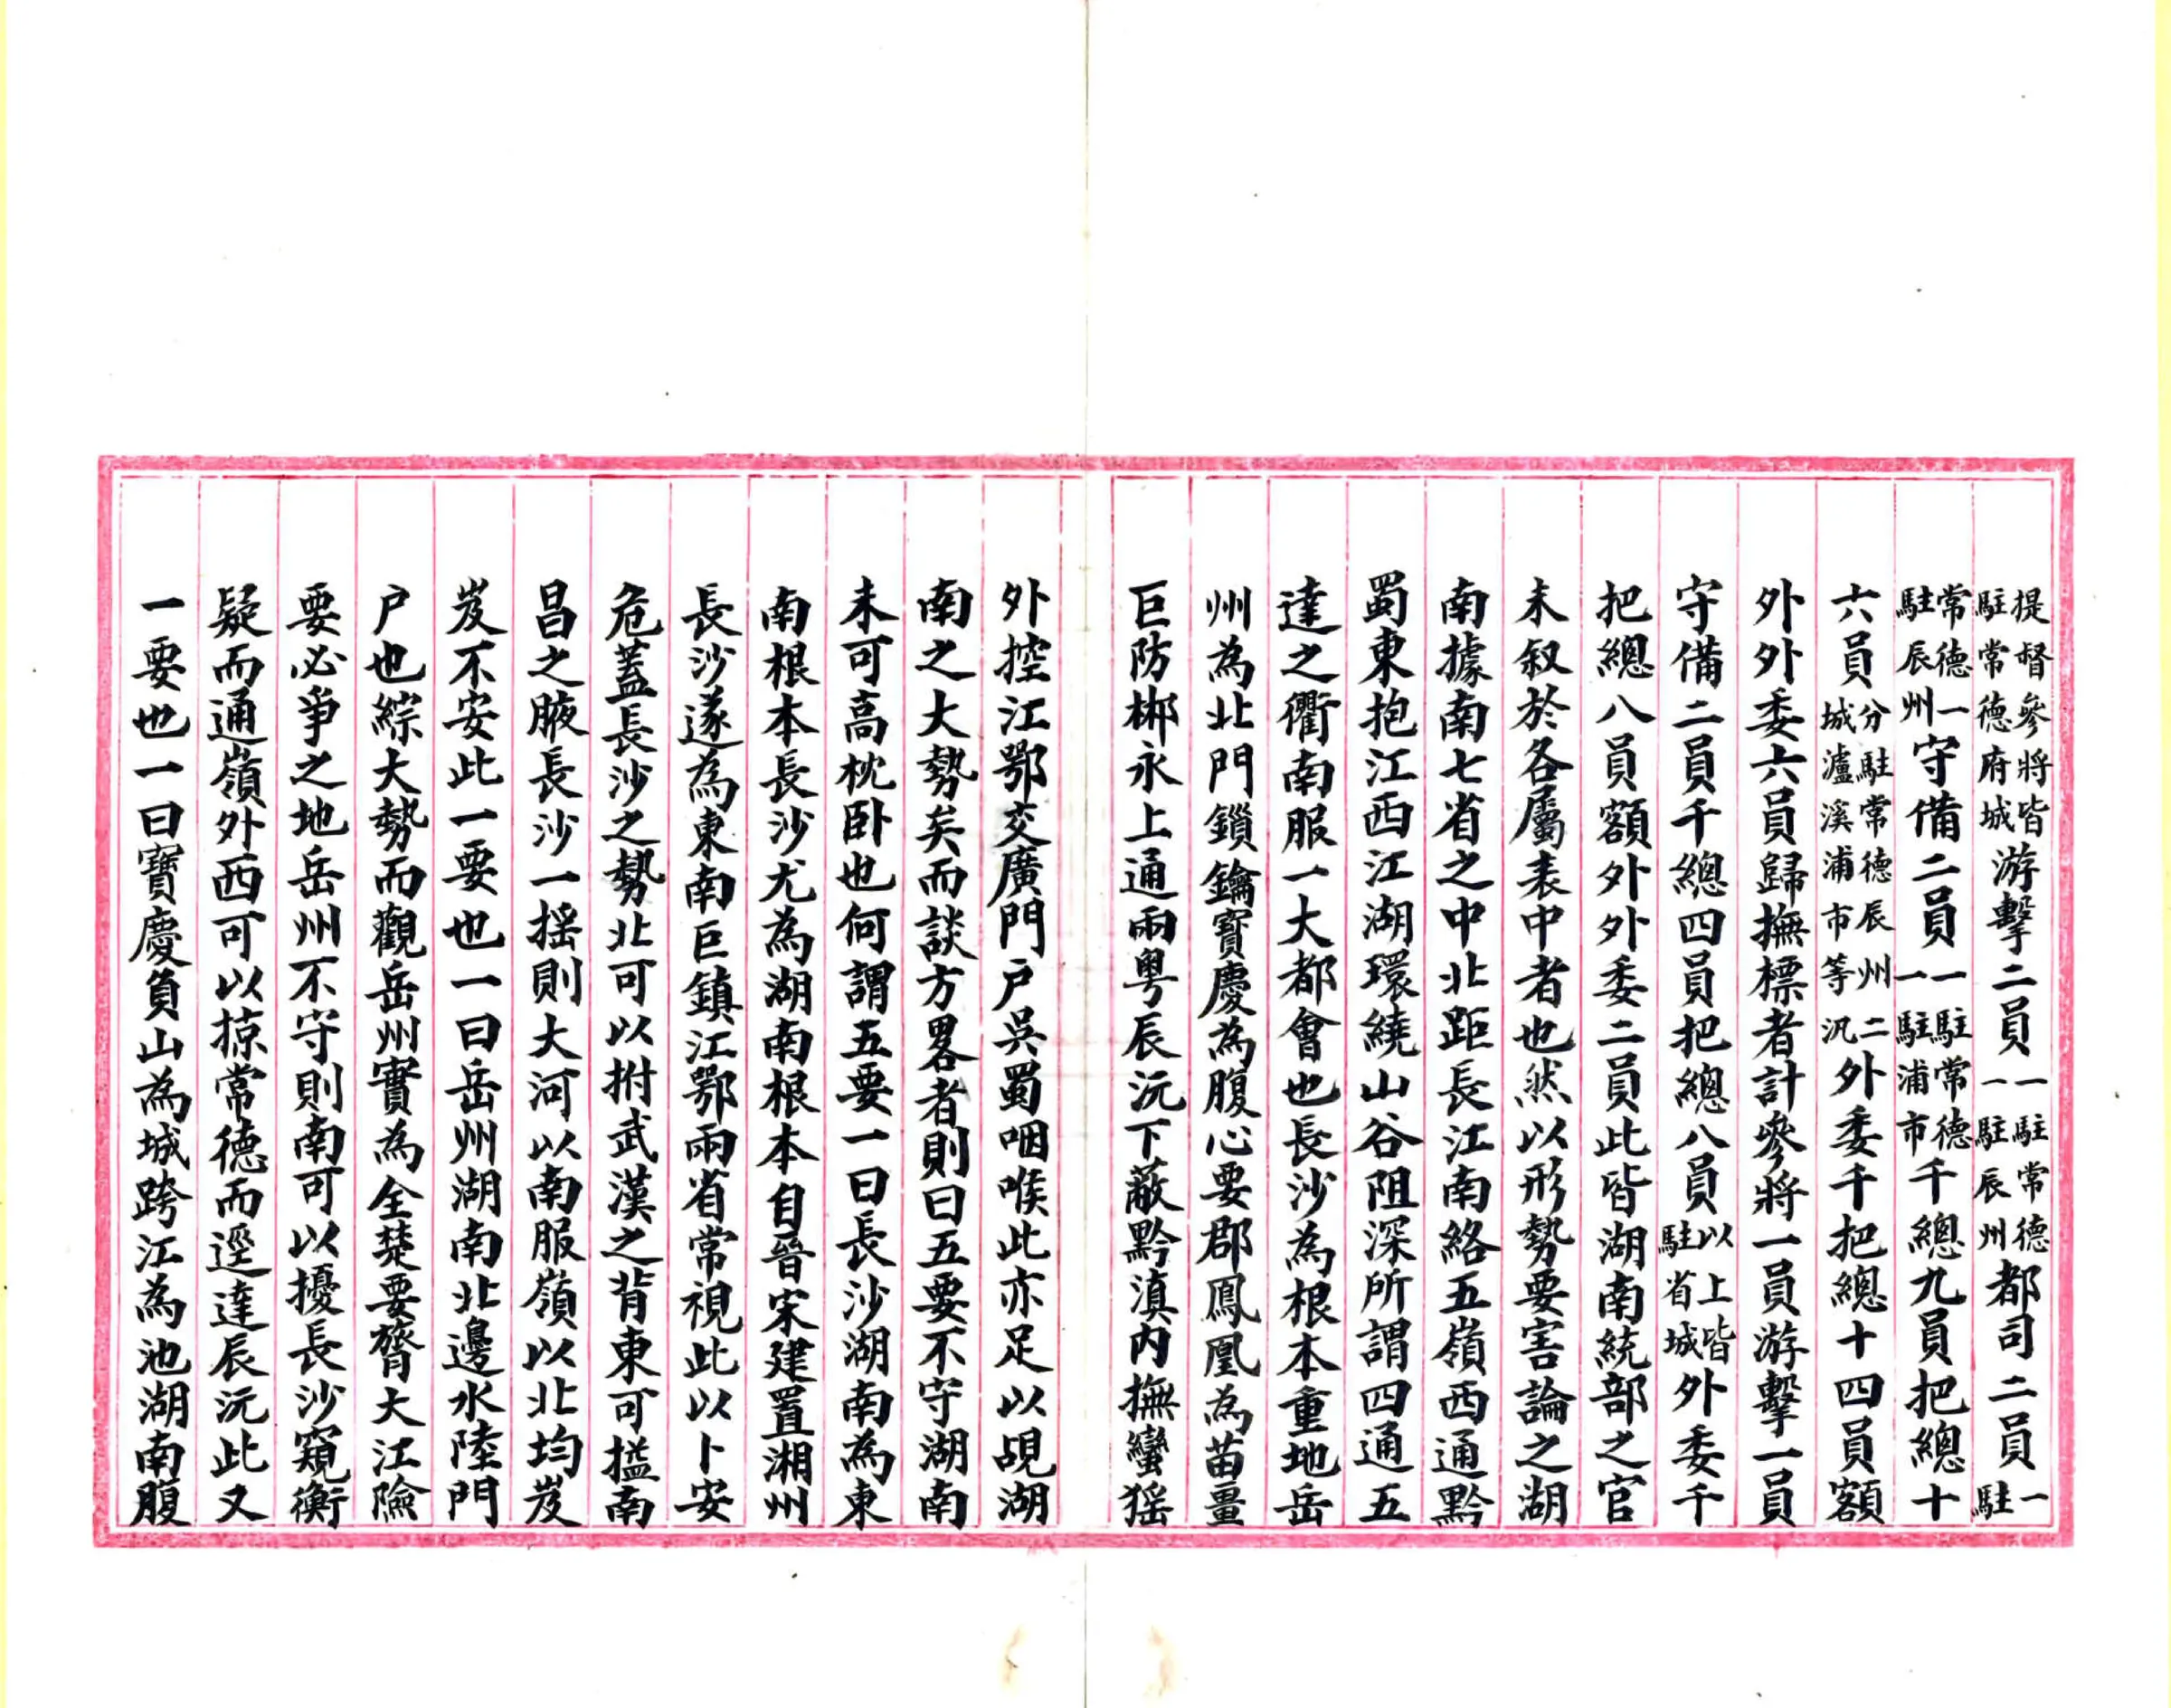 提督參將皆駐常德府城游擊二員一駐常德一駐辰州都司二員一駐
常德一駐辰州守備二員一駐常德一駐浦市千總九員把總十
六員分駐常德辰州二城瀘溪浦市等汎外委千把總十四員額
外外委六員歸撫標者計參將一員游擊一員
守備二員千總四員把總八員以上皆駐省城外委千
把總八員額外外委二員此皆湖南統部之官
未叙於各屬表中者也然以形勢要害論之湖
南據南七省之中北距長江南絡五嶺西通黔
蜀東抱江西江湖環繞山谷阻深所謂四通五
達之衢南服一大都會也長沙為根本重地岳
州為北門鎖鑰寶慶為腹心要郡鳳凰為苗畺
巨防郴永上通兩粵辰沅下蔽黔滇內撫蠻猺
外控江鄂交廣門戶吳蜀咽喉此亦足以覘湖
南之大勢矣而談方畧者則曰五要不守湖南
未可高枕卧也何謂五要一曰長沙湖南為東
南根本長沙尤為湖南根本自晉宋建置湘州
長沙遂為東南巨鎮江鄂兩省常視此以卜安
危蓋長沙之勢北可以拊武漢之背東可搤南
昌之腋長沙一摇則大河以南服嶺以北均岌
岌不安此一要也一曰岳州湖南北邊水陸門
戶也綜大勢而觀岳州實為全楚要膂大江險
要必爭之地岳州不守則南可以擾長沙窺衡
疑而通嶺外西可以掠常德而逕達辰沅此又
一要也一曰寶慶負山為城跨江為池湖南腹